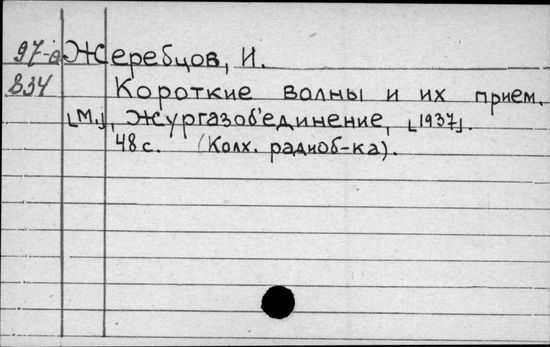 97-а Жеребцов, И.
834 Короткие волны и их прием.
[М.], Жургазоб'единение, [1937].
48 с. (Колх. радиоб-ка).